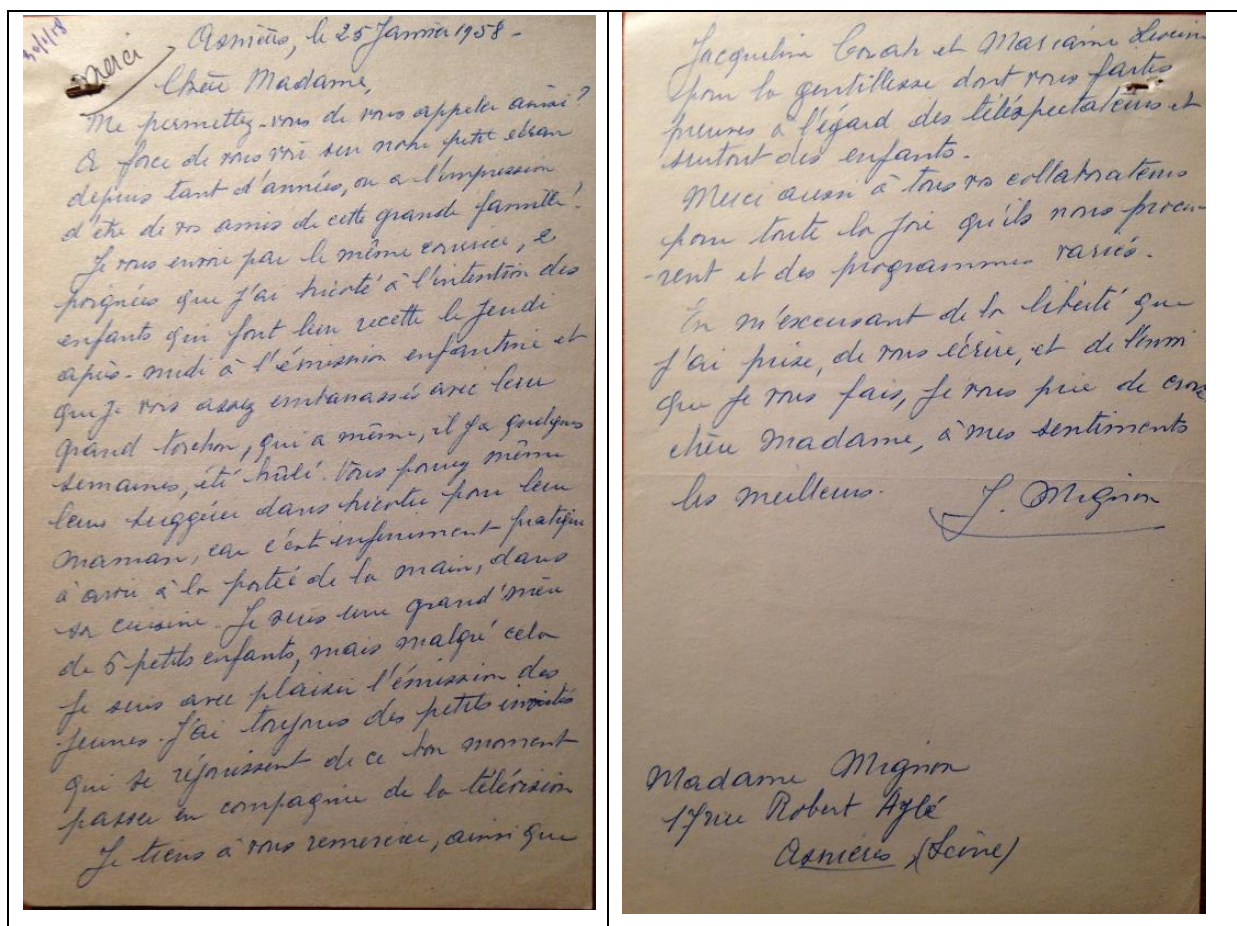 merci
Asnières, le 25 Janvier 1958 -
Chère Madame,
Me permettez-vous de vous appeler ainsi?
A force de vous voir sur notre petit écran
depuis tant d'années, on a l'impression
d'être de vos amis de cette grande famille!
Je vous envoie par le même courrier, 2
poignées que j'ai tricoté à l'intention des
enfants qui font leur recette le Jeudi
après-midi à l'émission enfantine et
que je vois assez embarrassés avec leur
grand torchon, qui a même, il y a quelques
semaines, été brûlé. Vous pouvez même
leurs suggérer d'en tricoter pour leur
maman, car c'est infiniment pratique
à avoir à la portée de la main, dans
sa cuisine. Je suis une grand'mère
de 5 petits enfants, mais malgré cela
je suis avec plaisir l'émission des
jeunes. J'ai toujours des petits invités
qui se réjouissent de ce bon moment
passer en compagnie de la télévision
Je tiens à vous remercier, ainsi que
Jacqueline et
pour la gentillesse dont vous faites
preuves à l'égard des téléspectateurs et
surtout des enfants.
Merci aussi à tous vos collaborateurs
pour toute la joie qu'ils nous procu-
-rent et des programmes variés.
En m'excusant de la liberté que
j'ai prise, de vous écrire, et de l'envoi
que je vous fais, je vous prie de croire
chère Madame, à mes sentiments
les meilleurs. J. Mignon
Madame Mignon
17 rue Robert
Asnières, (Seine)